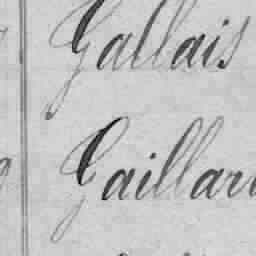 Gallais
Gaillar